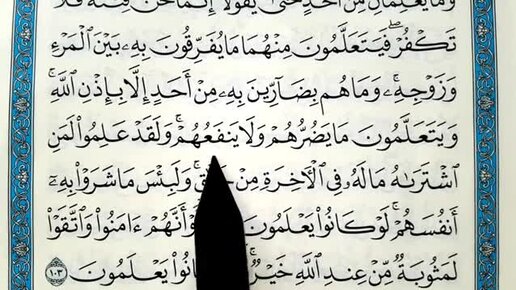 وَمَا يُعَلِّمَانِ مِنْ أَحَدٍ حَتَّىٰ يَقُولَآ إِنَّمَا نَحْنُ فِتْنَةٌ فَلَا
تَكْفُرْ ۖ فَيَتَعَلَّمُونَ مِنْهُمَا مَا يُفَرِّقُونَ بِهِۦ بَيْنَ ٱلْمَرْءِ
وَزَوْجِهِۦ ۚ وَمَا هُم بِضَآرِّينَ بِهِۦ مِنْ أَحَدٍ إِلَّا بِإِذْنِ ٱللَّهِ ۚ
وَيَتَعَلَّمُونَ مَا يَضُرُّهُمْ وَلَا يَنفَعُهُمْ ۚ وَلَقَدْ عَلِمُوا۟ لَمَنِ
ٱشْتَرَىٰهُ مَا لَهُۥ فِى ٱلْـَٔاخِرَةِ مِنْ ۚ وَلَبِئْسَ مَا شَرَوْا۟ بِهِۦٓ
أَنفُسَهُمْ ۚ لَوْ كَانُوا۟ يَعْلَمُونَ وَلَوْ أَنَّهُمْ ءَامَنُوا۟ وَٱتَّقَوْا۟
لَمَثُوبَةٌ مِّنْ عِندِ ٱللَّهِ خَيْرٌ ۖ يَعْلَمُونَ ١٠٣